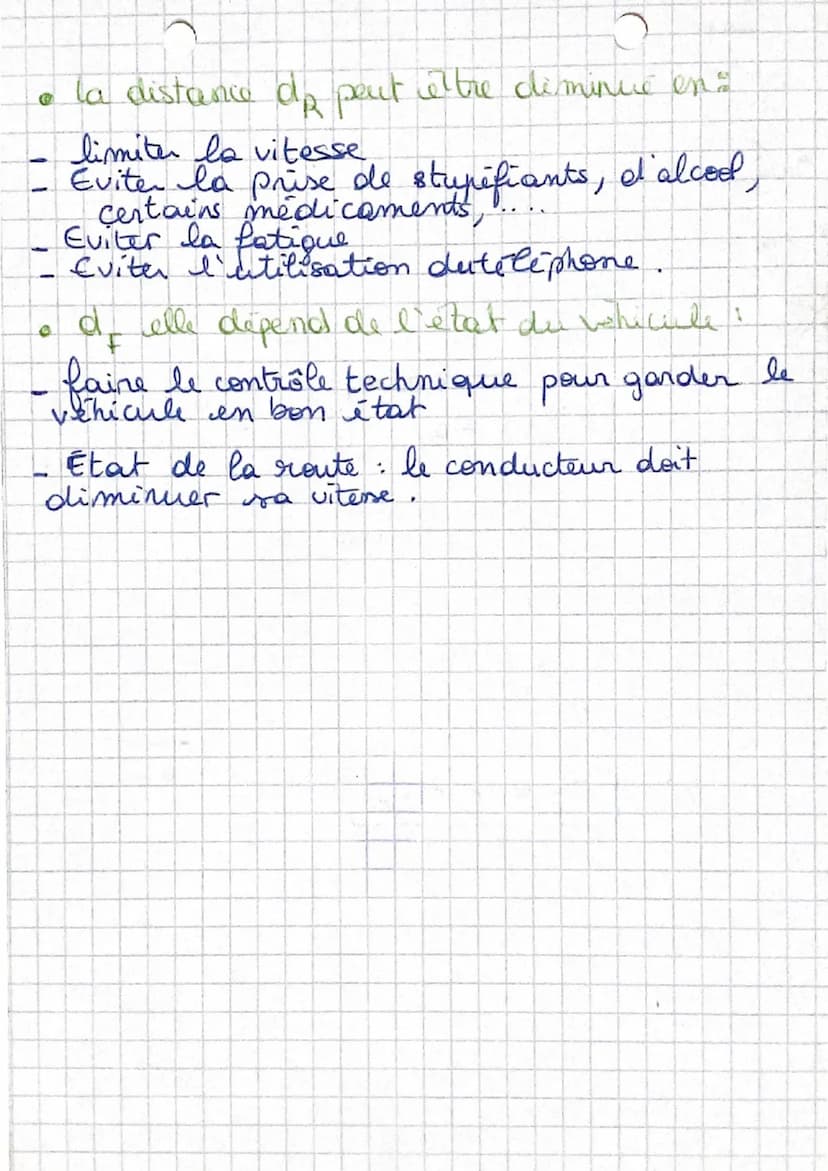 • la distance dR peut être diminué en :
- limiter la vitesse
- Eviter la prise de stupéfiants, d'alcool,
certains médicaments, ....
- Eviter la fatigue
- Eviter l'utilisation du téléphone .
• dF elle dépend de l'état du véhicule :
- faire le contrôle technique pour garder le
véhicule en bon état
- État de la route : le conducteur doit
diminuer sa vitesse .